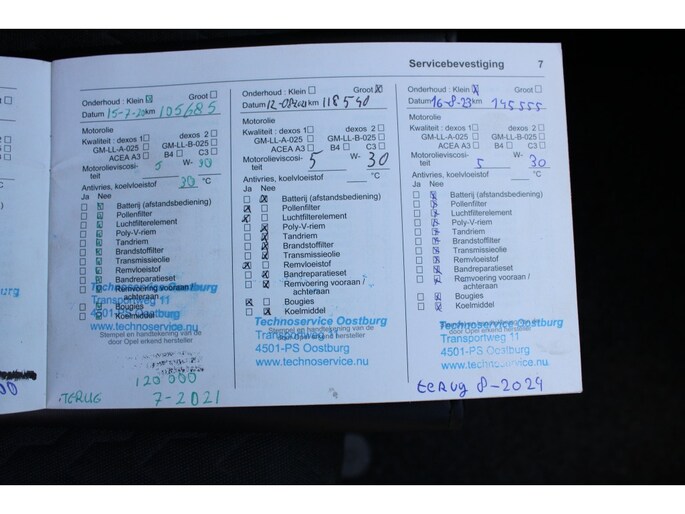 Servicebevestiging 7
Onderhoud : Klein Groot
Datum 15-7-20 km 105685
Motorolie
Kwaliteit : dexos 1 dexos 2
GM-LL-A-025 GM-LL-B-025
ACEA A3 B4 C3
Motorolieviscosi- 5 W- 30
teit
Antivries, koelvloeistof 30 °C
Ja Nee
Batterij (afstandsbediening)
Pollenfilter
Luchtfilterelement
Poly-V-riem
Tandriem
Brandstoffilter
Transmissieolie
Remvloeistof
Bandreparatieset
Remvoering vooraan /
achteraan
Bougies
Koelmiddel
Technoservice Oostburg
Transportweg 11
4501-PS Oostburg
www.technoservice.nu
120 000
TERUG 7-2021
Onderhoud : Klein Groot
Datum 12-08-2021 km 118540
Motorolie
Kwaliteit : dexos 1 dexos 2
GM-LL-A-025 GM-LL-B-025
ACEA A3 B4 C3
Motorolieviscosi- 5 W- 30
teit
Antivries, koelvloeistof °C
Ja Nee
Batterij (afstandsbediening)
Pollenfilter
Luchtfilterelement
Poly-V-riem
Tandriem
Brandstoffilter
Transmissieolie
Remvloeistof
Bandreparatieset
Remvoering vooraan /
achteraan
Bougies
Koelmiddel
Technoservice Oostburg
Stempel en handtekening van de
Transportweg 11
door Opel erkend hersteller
4501-PS Oostburg
www.technoservice.nu
Onderhoud : Klein Groot
Datum 16-8-23 km 145555
Motorolie
Kwaliteit : dexos 1 dexos 2
GM-LL-A-025 GM-LL-B-025
ACEA A3 B4 C3
Motorolieviscosi- 5 W- 30
teit
Antivries, koelvloeistof °C
Ja Nee
Batterij (afstandsbediening)
Pollenfilter
Luchtfilterelement
Poly-V-riem
Tandriem
Brandstoffilter
Transmissieolie
Remvloeistof
Bandreparatieset
Remvoering vooraan /
achteraan
Bougies
Koelmiddel
Technoservice Oostburg
Transportweg 11
door Opel erkend hersteller
4501-PS Oostburg
www.technoservice.nu
terug 8-2024